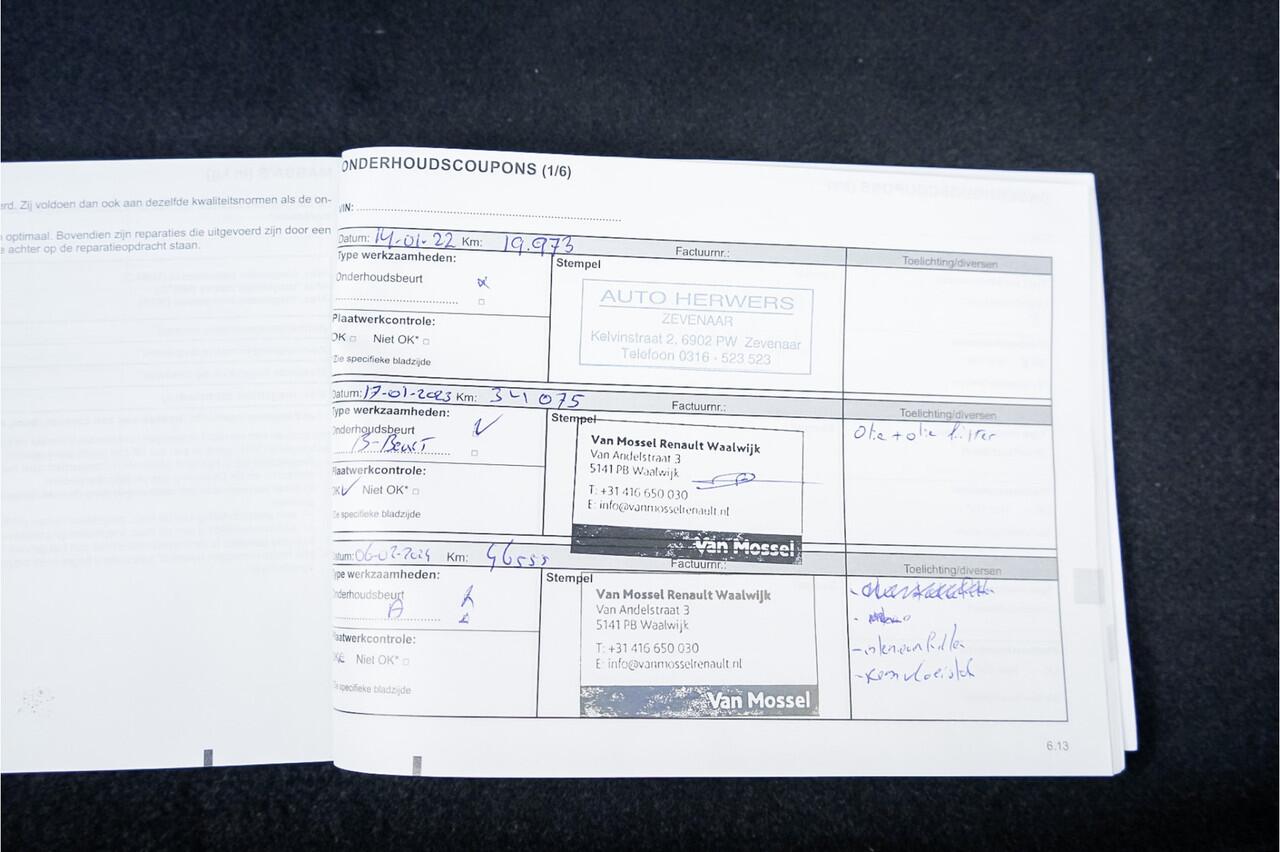 erd. Zij voldoen dan ook aan dezelfde kwaliteitsnormen als de on-
optimaal. Bovendien zijn reparaties die uitgevoerd zijn door een
e achter op de reparatieopdracht staan.
ONDERHOUDSCOUPONS (1/6)
VIN:
Datum: 14-01-22 Km: 19.973 Factuurnr.: Toelichting/diversen
Type werkzaamheden: Stempel
Onderhoudsbeurt
AUTO HERWERS
ZEVENAAR
Plaatwerkcontrole:
Kelvinstraat 2, 6902 PW Zevenaar
OK Niet OK*
Telefoon 0316 - 523 523
Zie specifieke bladzijde
Datum: 17-01-2023 Km: 34 075 Factuurnr.: Toelichting/diversen
Type werkzaamheden: Stempel
Onderhoudsbeurt
Olie + olie filter
B-Beurt
Van Mossel Renault Waalwijk
Van Andelstraat 3
Plaatwerkcontrole:
5141 PB Waalwijk
OK Niet OK*
T: +31 416 650 030
E: info@vanmosselrenault.nl
Zie specifieke bladzijde
Van Mossel
Datum: 06-02-2024 Km: 46555 Factuurnr.: Toelichting/diversen
Type werkzaamheden: Stempel
Onderhoudsbeurt
A
Van Mossel Renault Waalwijk
Van Andelstraat 3
5141 PB Waalwijk
Plaatwerkcontrole:
T: +31 416 650 030
- interieurfilter
Niet OK*
E: info@vanmosselrenault.nl
- remvloeistof
Zie specifieke bladzijde
Van Mossel
6.13